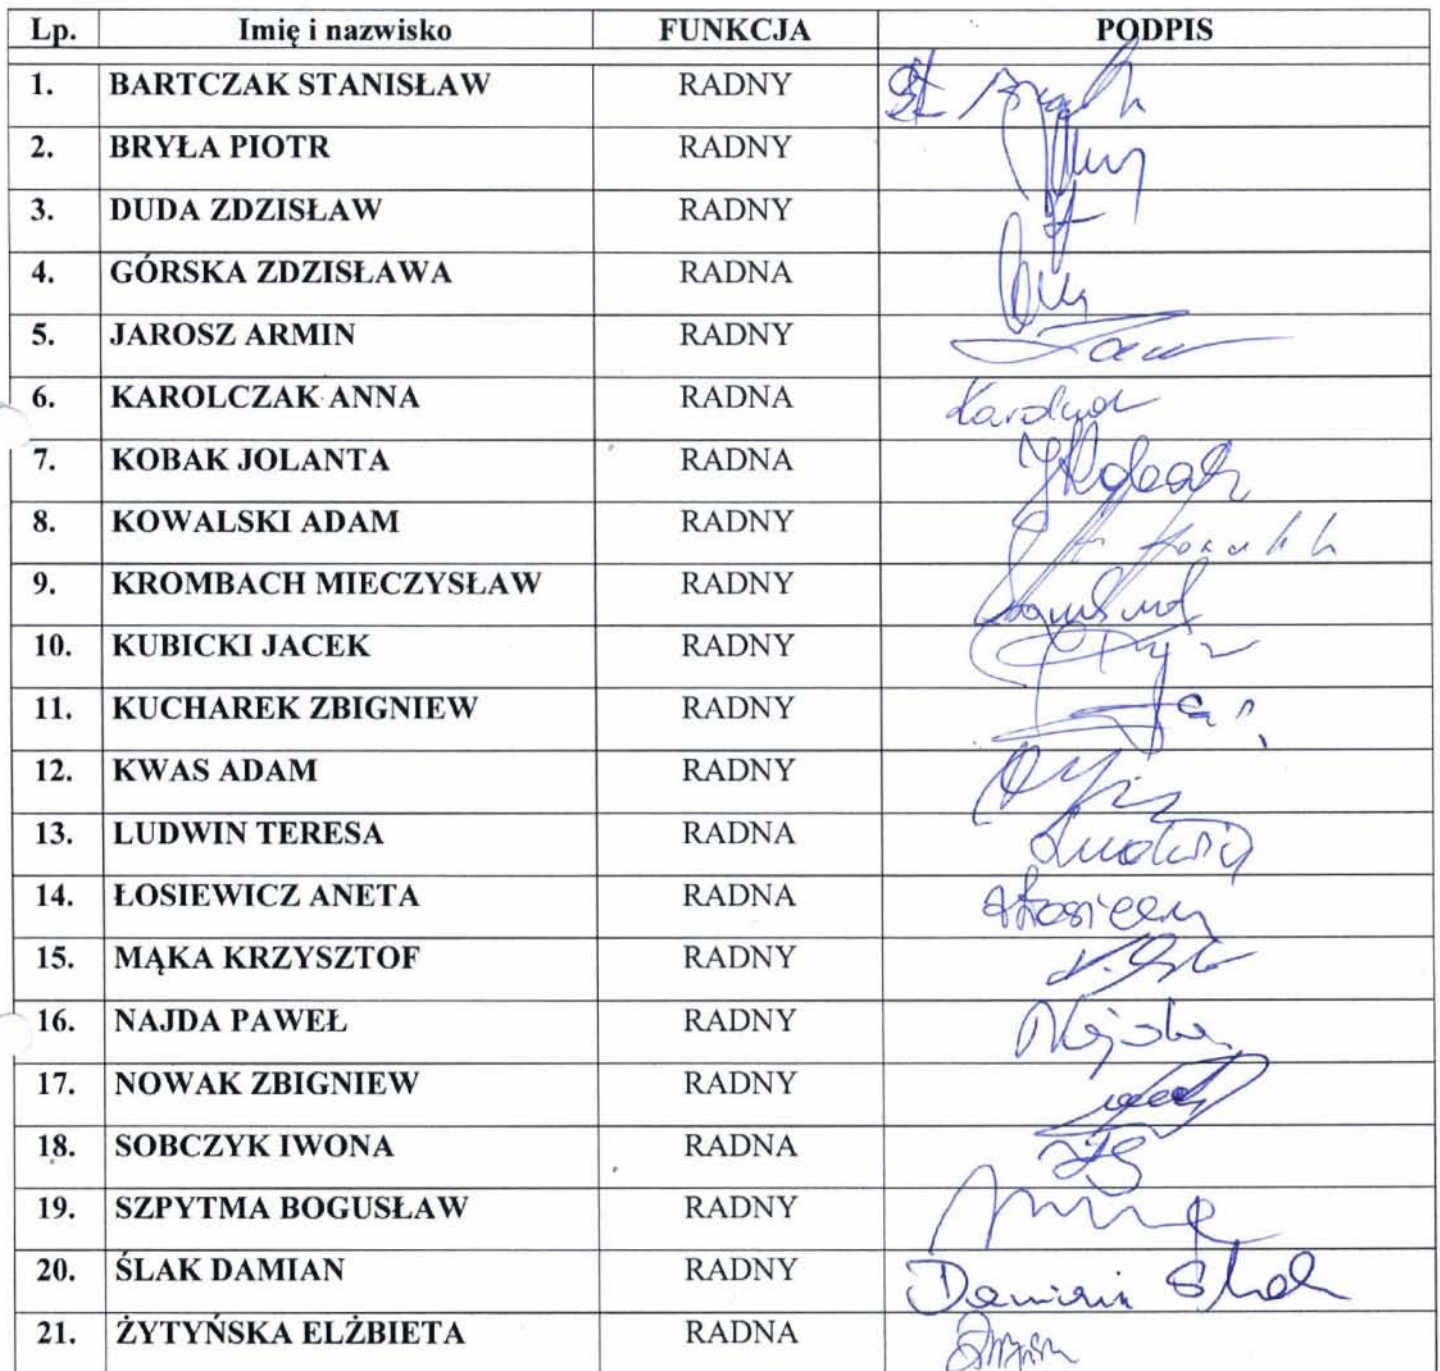 Lp. Imię i nazwisko FUNKCJA PODPIS
1. BARTCZAK STANISŁAW RADNY St
2. BRYŁA PIOTR RADNY
3. DUDA ZDZISŁAW RADNY
4. GÓRSKA ZDZISŁAWA RADNA
5. JAROSZ ARMIN RADNY
6. KAROLCZAK ANNA RADNA
7. KOBAK JOLANTA RADNA JKobak
8. KOWALSKI ADAM RADNY
9. KROMBACH MIECZYSŁAW RADNY
10. KUBICKI JACEK RADNY
11. KUCHAREK ZBIGNIEW RADNY
12. KWAS ADAM RADNY
13. LUDWIN TERESA RADNA Ludwin
14. ŁOSIEWICZ ANETA RADNA
15. MĄKA KRZYSZTOF RADNY
16. NAJDA PAWEŁ RADNY Najda
17. NOWAK ZBIGNIEW RADNY
18. SOBCZYK IWONA RADNA IS
19. SZPYTMA BOGUSŁAW RADNY
20. ŚLAK DAMIAN RADNY Damian Ślak
21. ŻYTYŃSKA ELŻBIETA RADNA